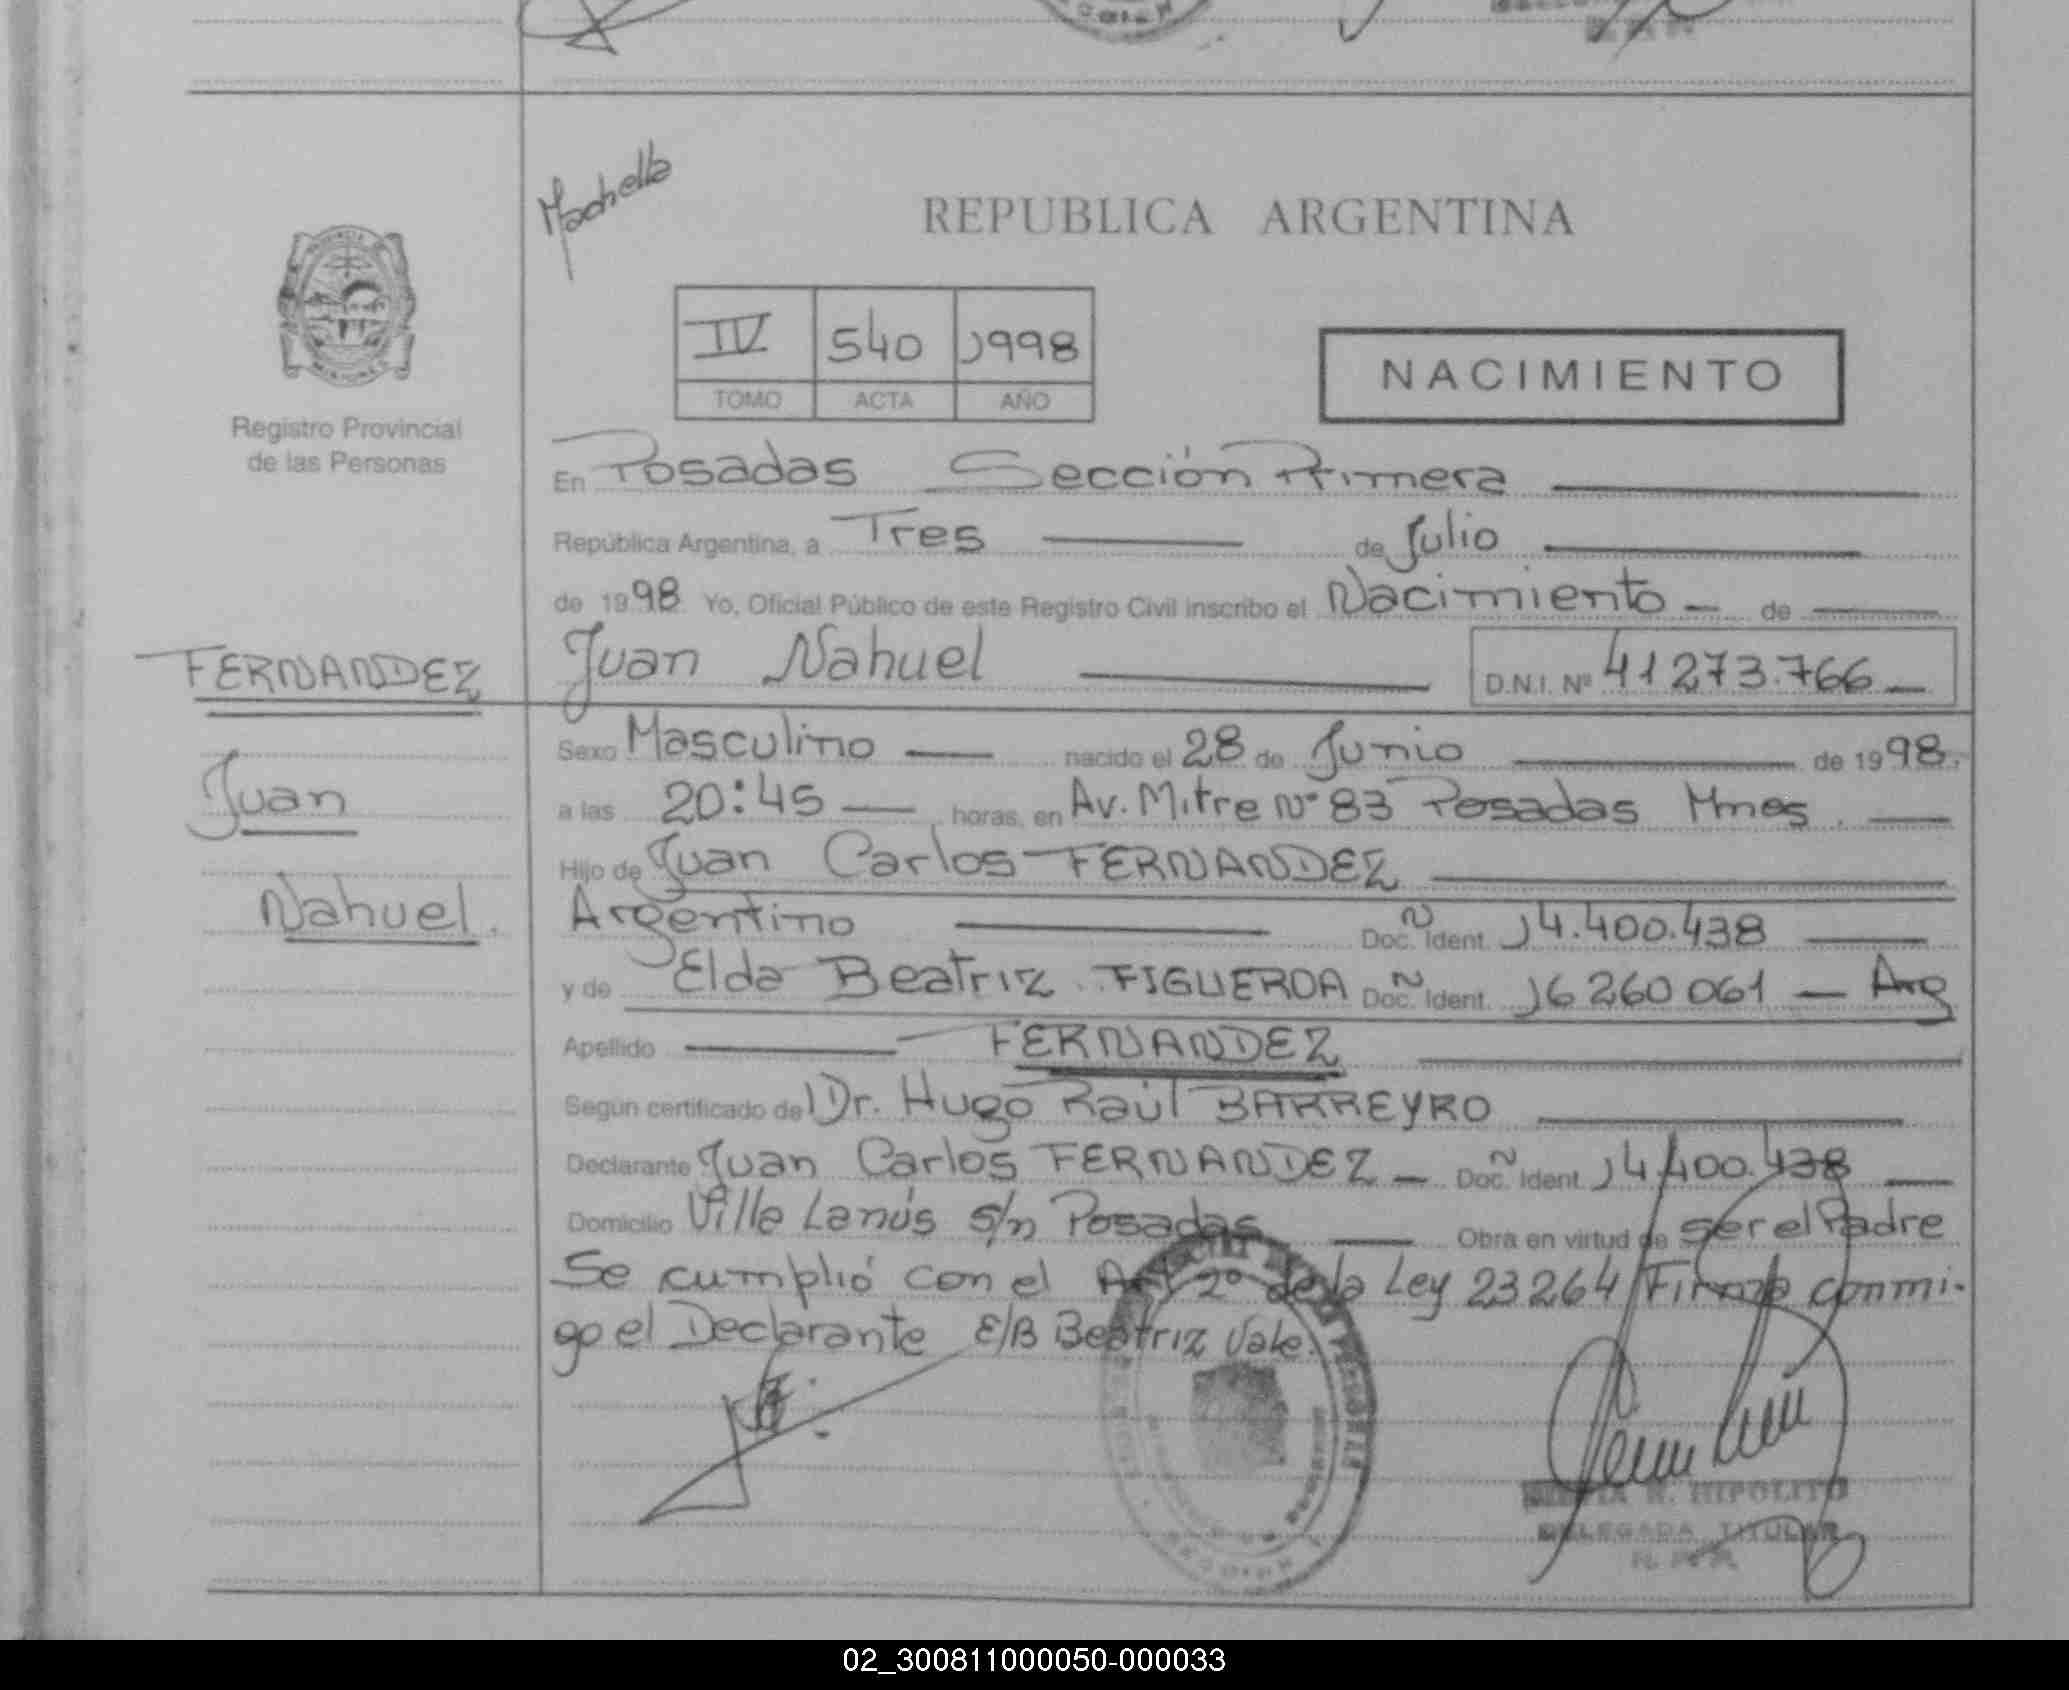 Machella
REPUBLICA ARGENTINA
IV 540 1998
TOMO ACTA AÑO
NACIMIENTO
Registro Provincial
de las Personas
En Posadas Sección Primera
República Argentina, a Tres de Julio
de 1998 Yo, Oficial Público de este Registro Civil inscribo el Nacimiento de
FERNANDEZ Juan Nahuel D.N.I. Nº 41273.766
Sexo Masculino nacido el 28 de Junio de 1998.
Juan a las 20:45 horas, en Av. Mitre Nº 83 Posadas Mnes.
Hijo de Juan Carlos FERNANDEZ
Nahuel. Argentino Doc. Ident. 14.400.438
y de Elda Beatriz FIGUEROA Doc. Ident. 16260061 Arg
Apellido FERNANDEZ
Según certificado de Dr. Hugo Raúl BARREYRO
Declarante Juan Carlos FERNANDEZ Doc. Ident. 14400.438
Domicilio Villa Lanús s/n Posadas Obra en virtud de ser el Padre
Se cumplió con el Art 2º de la Ley 23264 Firma conmi-
go el Declarante E/B Beatriz Vale.
R. HIPOLITO
DELEGADA TITULAR
02_300811000050-000033